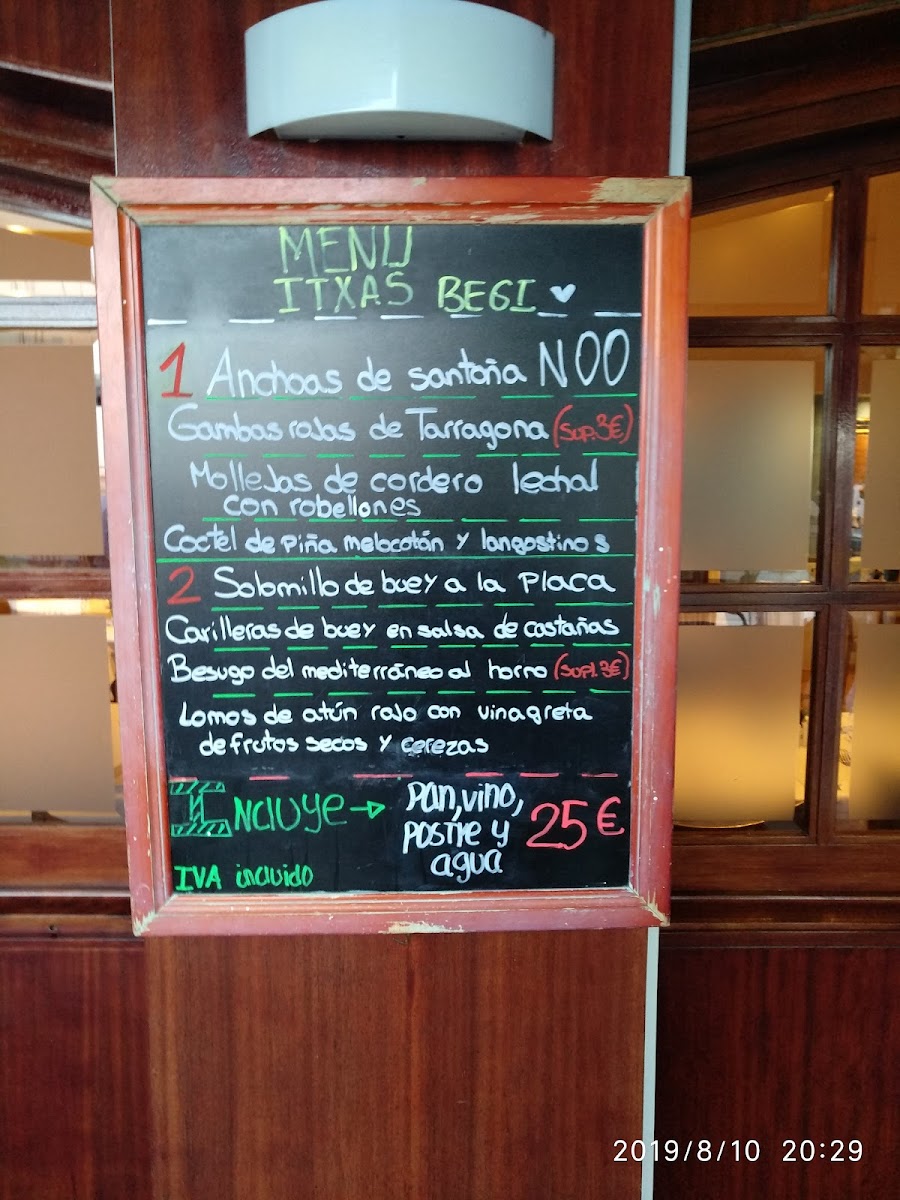 MENU
ITXAS BEGI
1 Anchoas de santoña NOO
Gambas rojas de Tarragona (sup. 3€)
Mollejas de cordero lechal
con robellones
Coctel de piña melocotón y langostinos
2 Solomillo de buey a la placa
Carilleras de buey en salsa de castañas
Besugo del mediterráneo al horno (supl. 3€)
Lomos de atún rojo con vinagreta
de frutos secos y cerezas
Incluye → pan, vino,
postre y
agua
25€
IVA incluido
2019/8/10 20:29